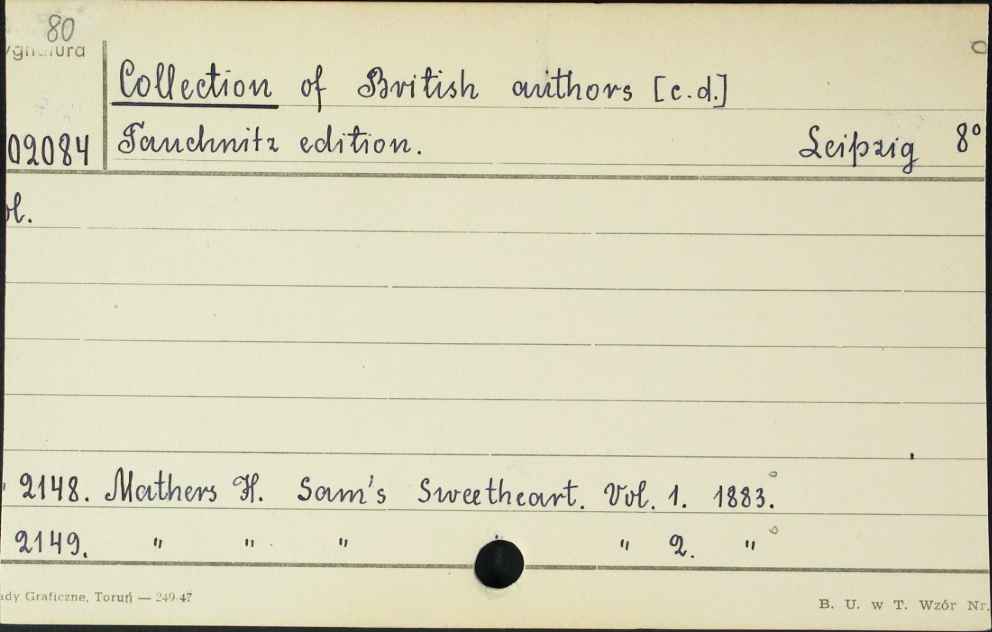 80
ygnatura
Collection of British authors [c.d.]
02084 Tauchnitz edition. Leipzig 8°
ol.
2148. Mathers H. Sam's Sweetheart. Vol. 1. 1883.
2149. " " " " " 2. "
ady Graficzne, Toruń — 249-47
B. U. w T. Wzór Nr.